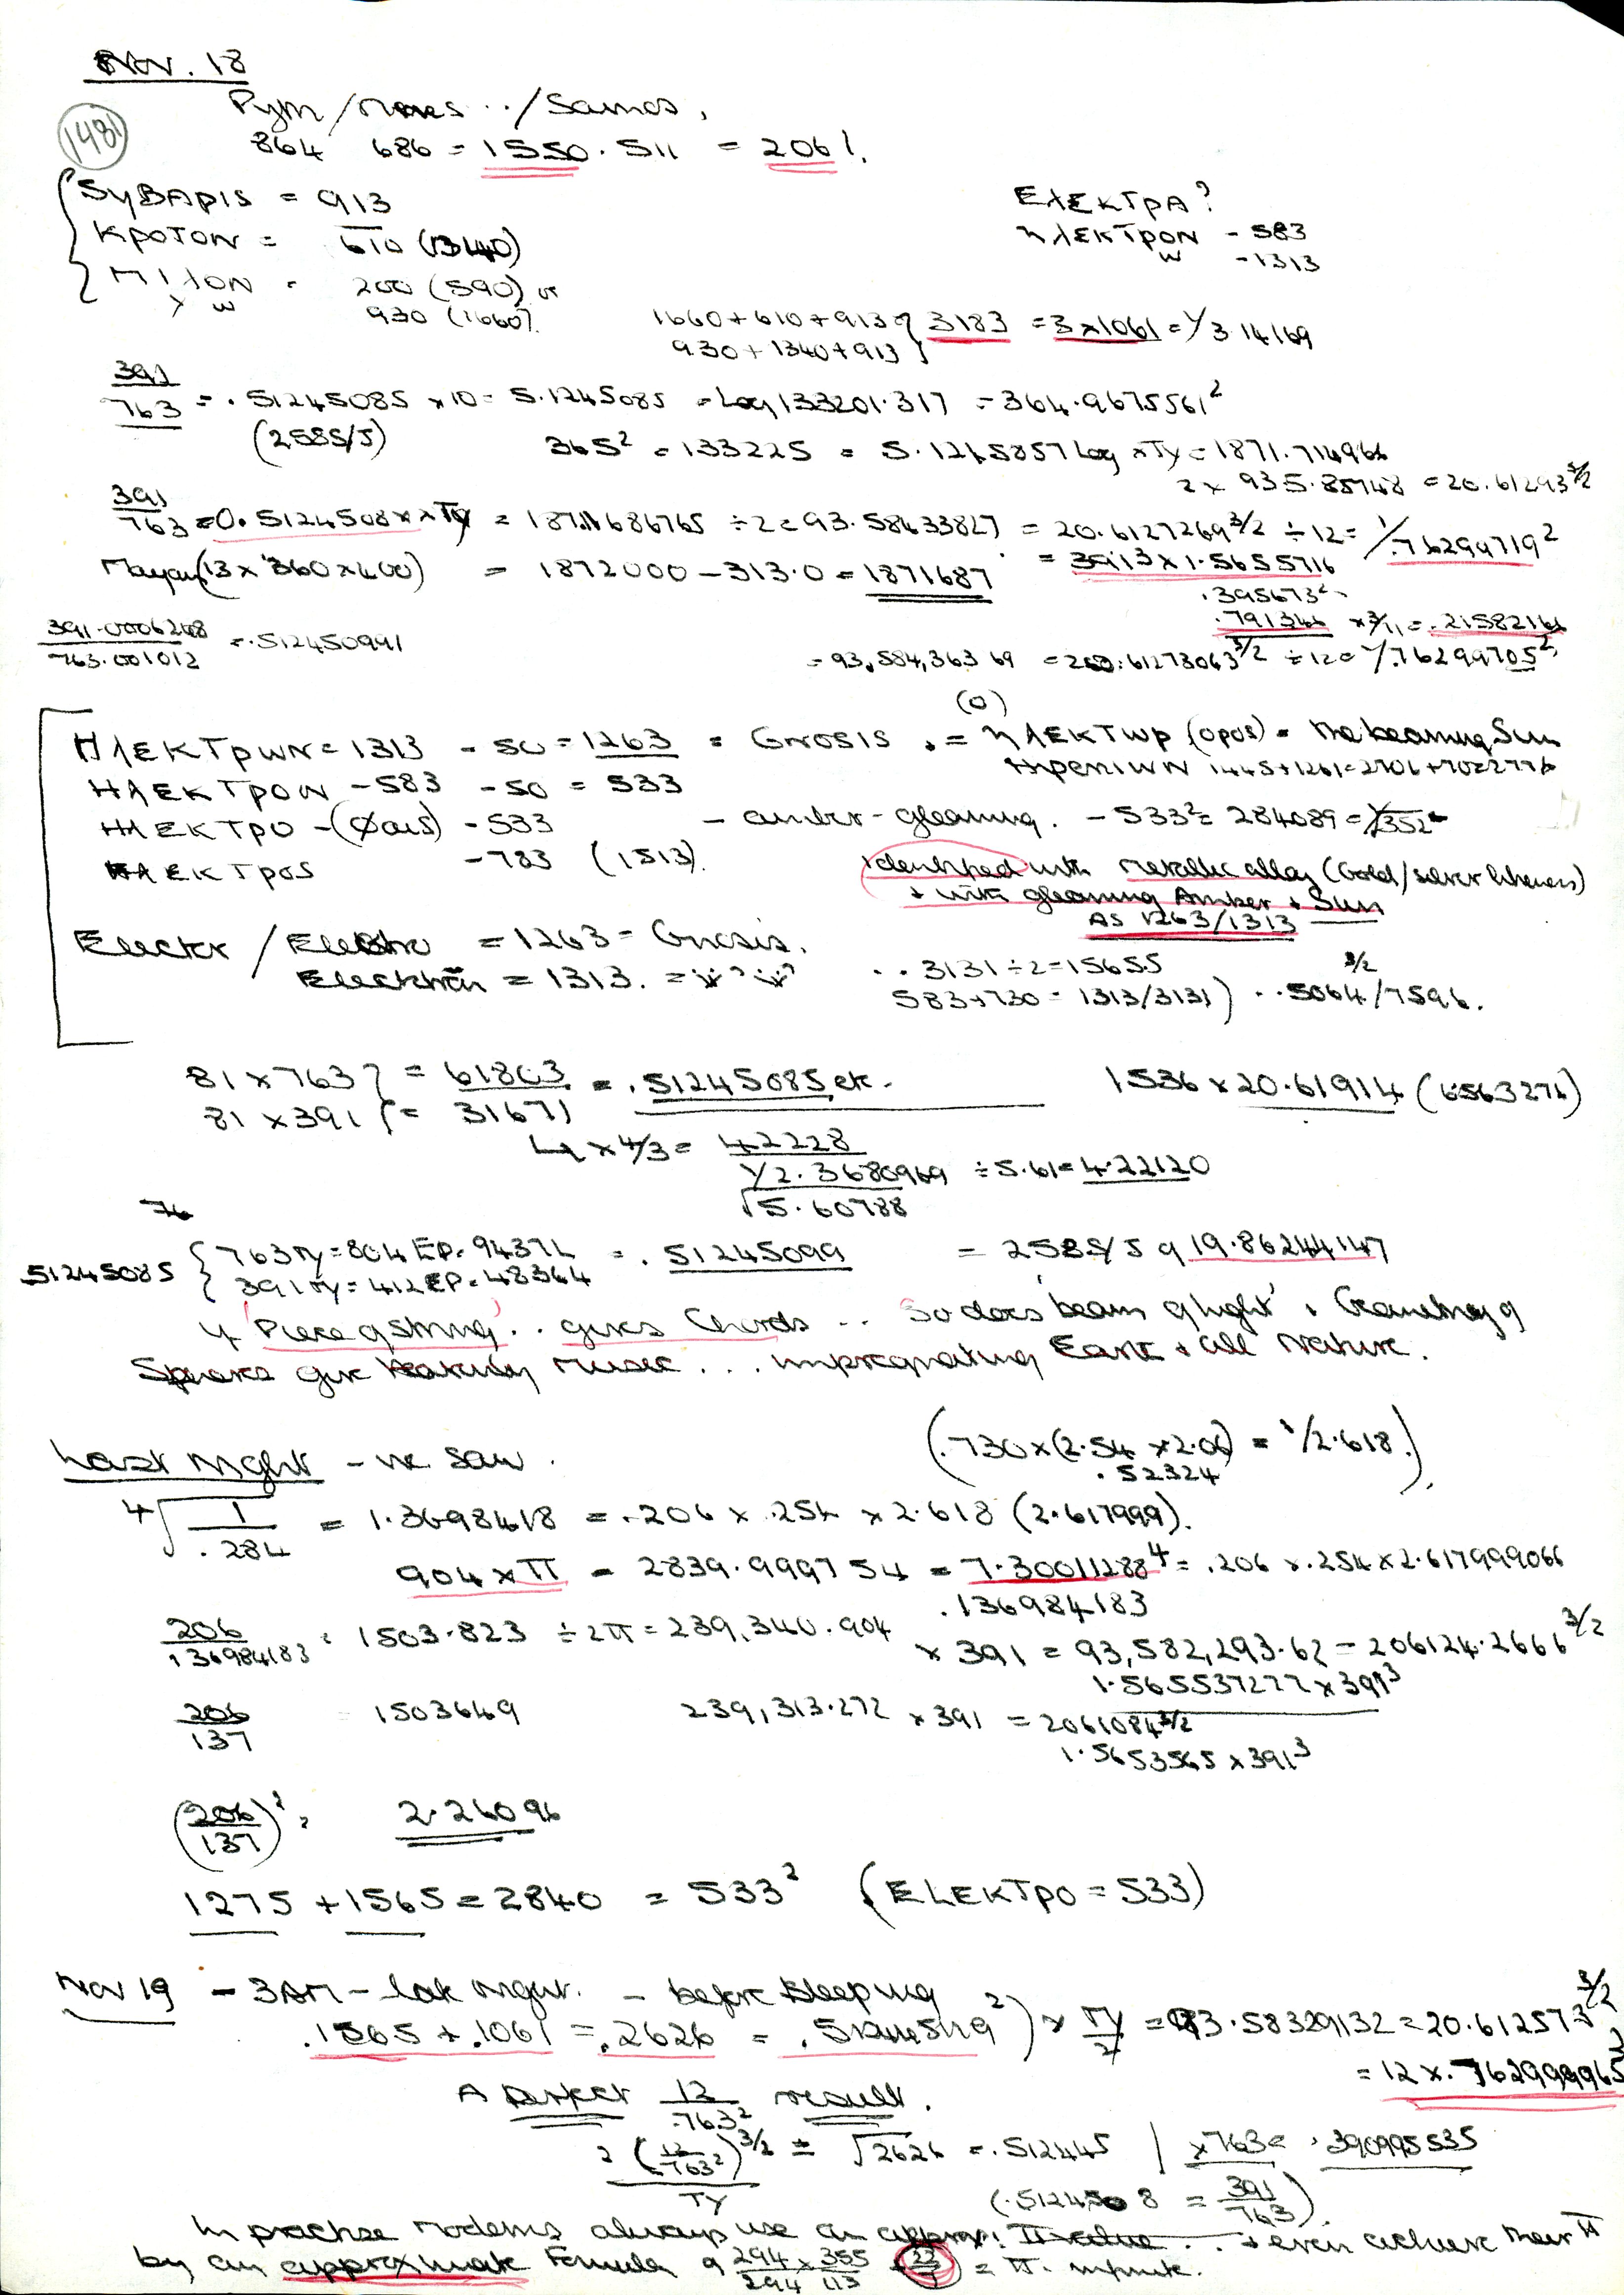 Nov. 18
1481
Pym / / Samos.
864 686 = 1550. 511 = 2061.
SYBAPIS = 913
KPOTON = 610 (1340)
MIΛON = 200 (590) or
Y W 930 (1660).
EΛEKTPA?
ηΛEKTPON - 583
W - 1313
1660+610+913 } 3183 = 3×1061 = 1/3.14169
930+1340+913
391/763 = .51245085 ×10 = 5.1245085 = Log 133201.317 = 364.9675561²
(2585/5) 365² = 133225 = 5.1245857 Log ×Ty = 1871.714966
2 × 935.85748 = 20.61293 3/2
391/763 = 0.5124508 × Ty = 187.1686765 ÷2 = 93.58433827 = 20.6127269 3/2 ÷12 = 1/.76299719²
Mayan (13 × 360 × 400) = 1872000 - 313.0 = 1871687 = 3913 × 1.5655716
.395673²
.791346 × 3/11 = .2158216
391.0006208/763.001012 = .512450991
= 93,584,363 69 = 20.61273063 3/2 ÷12 = 1/.76299705²
(O)
HΛEKTPWN = 1313 - 50 = 1263 = GNOSIS. = ηΛEKTWP (opos) = The beaming Sun
1445+1261=2706+70=2776
HΛEKTPON - 583 - 50 = 533
HΛEKTPO - (Øaus) - 533 - amber - gleaming. - 533² = 284089 = 1/352
HΛEKTPOS - 783 (1513).
Identified with metallic alloy (Gold/silver)
+ with gleaming Amber + Sun
AS 1263/1313
Elector / Elektro = 1263 = Gnosis.
= 1313.
.. 3131 ÷ 2 = 1565.5 3/2
583+730 = 1313/3131) .. 5064/7596.
81 × 763 } = 61803 = .51245085 etc. 1536 × 20.61914 (6563276)
81 × 391 { = 31671
× 4/3 = 42228
1/2.3680969 ÷ 5.61 = 4.22120
√5.60788
76
51245085 { 763 Ty = 804 EP. 94374 = .51245099 = 2585/5 of 19.86244147
391 Ty = 412 EP. 48364
If 'Piece of String' .. gives Chords .. So does 'beam of light' + Geometry of
Spheres give Heavenly Music ... impregnating Earth + all Nature.
(.730 × (2.54 × 2.06) = 1/2.618.)
.52324
Last Night - we saw.
4√ 1/.284 = 1.3698418 = .206 × .254 × 2.618 (2.617999).
904 × π = 2839.999754 = 7.30011288⁴ = .206 × .254 × 2.617999066
.136984183
206/136984183 = 1503.823 ÷ 2π = 239,340.904 × 391 = 93,582,293.62 = 206124.2666 3/2
1.565537277 × 391³
206/137 = 1503649 239,313.272 × 391 = 2061084 3/2
1.5653565 × 391³
(206/137)² = 2.26096
1275 + 1565 = 2840 = 533² (ELEKTPO = 533)
Nov 19 - 3AM - late night. - before sleeping
.1565 + .1061 = .2626 = .5124519²) × Ty/2 = 93.58329132 = 20.612573 3/2
= 12 × .762999965²
A perfect 12/.763² result.
2 (12/763²) 3/2 / TY = √2626 = .512445 | × 763 = .390995535
(.5124508 = 391/763)
In practise moderns always use an approx: π value .. + even achieve their π
by an approximate Formula of 294/294 × 355/113 22/7 = π. infinite.